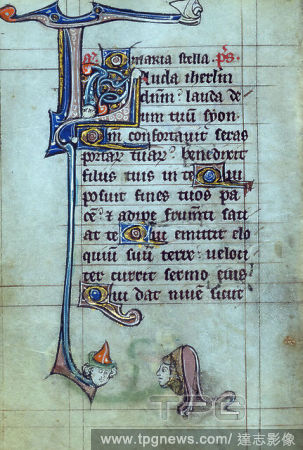 maria stella. ps
Lauda iherlm
dnm: lauda de
um tuu syon
Qm confortavit seras
portar tuar: benedixit
filiis tuis in te Qui
posuit fines tuos pa
ce: & adipe frumti sati
at te Qui emittit elo
quiu suu terre: veloci
ter currit sermo eius
Qui dat nive sicut
TPG
www.tpgnews.com/ 達志影像